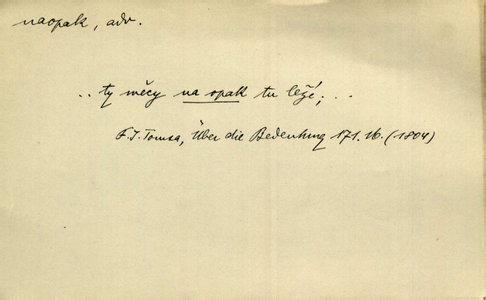 naopak, adv.
.. ty měcy na opak tu ležé; ..
F. J. Tomsa, Über die Bedeutung 171. 16. (1804)